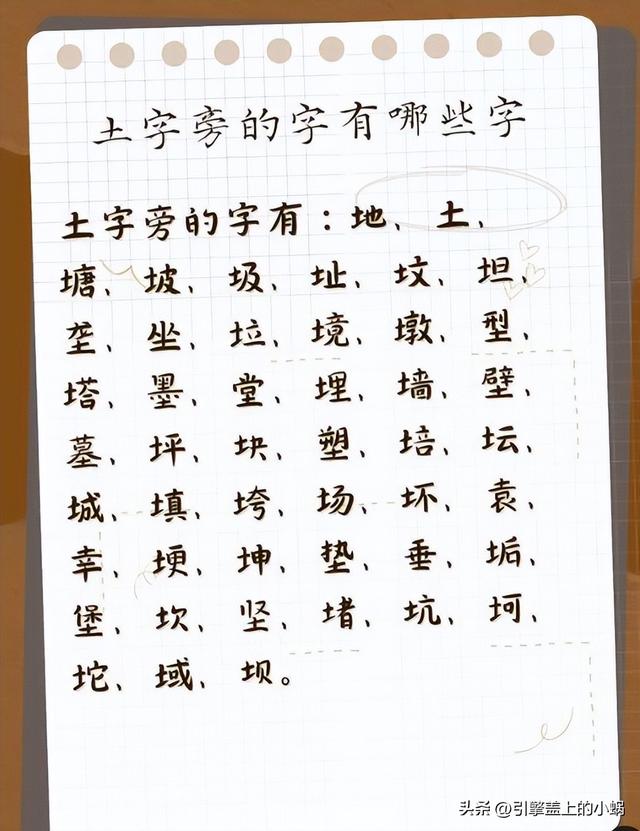 土字旁的字有哪些字
土字旁的字有：地、土、
塘、坡、圾、址、坟、坦、
垄、坐、垃、境、墩、型、
塔、墨、堂、埋、墙、壁、
墓、坪、块、塑、培、坛、
城、填、垮、场、坏、袁、
幸、埂、坤、垫、垂、垢、
堡、坎、坚、堵、坑、坷、
坨、域、坝。
头条 @引擎盖上的小蜗